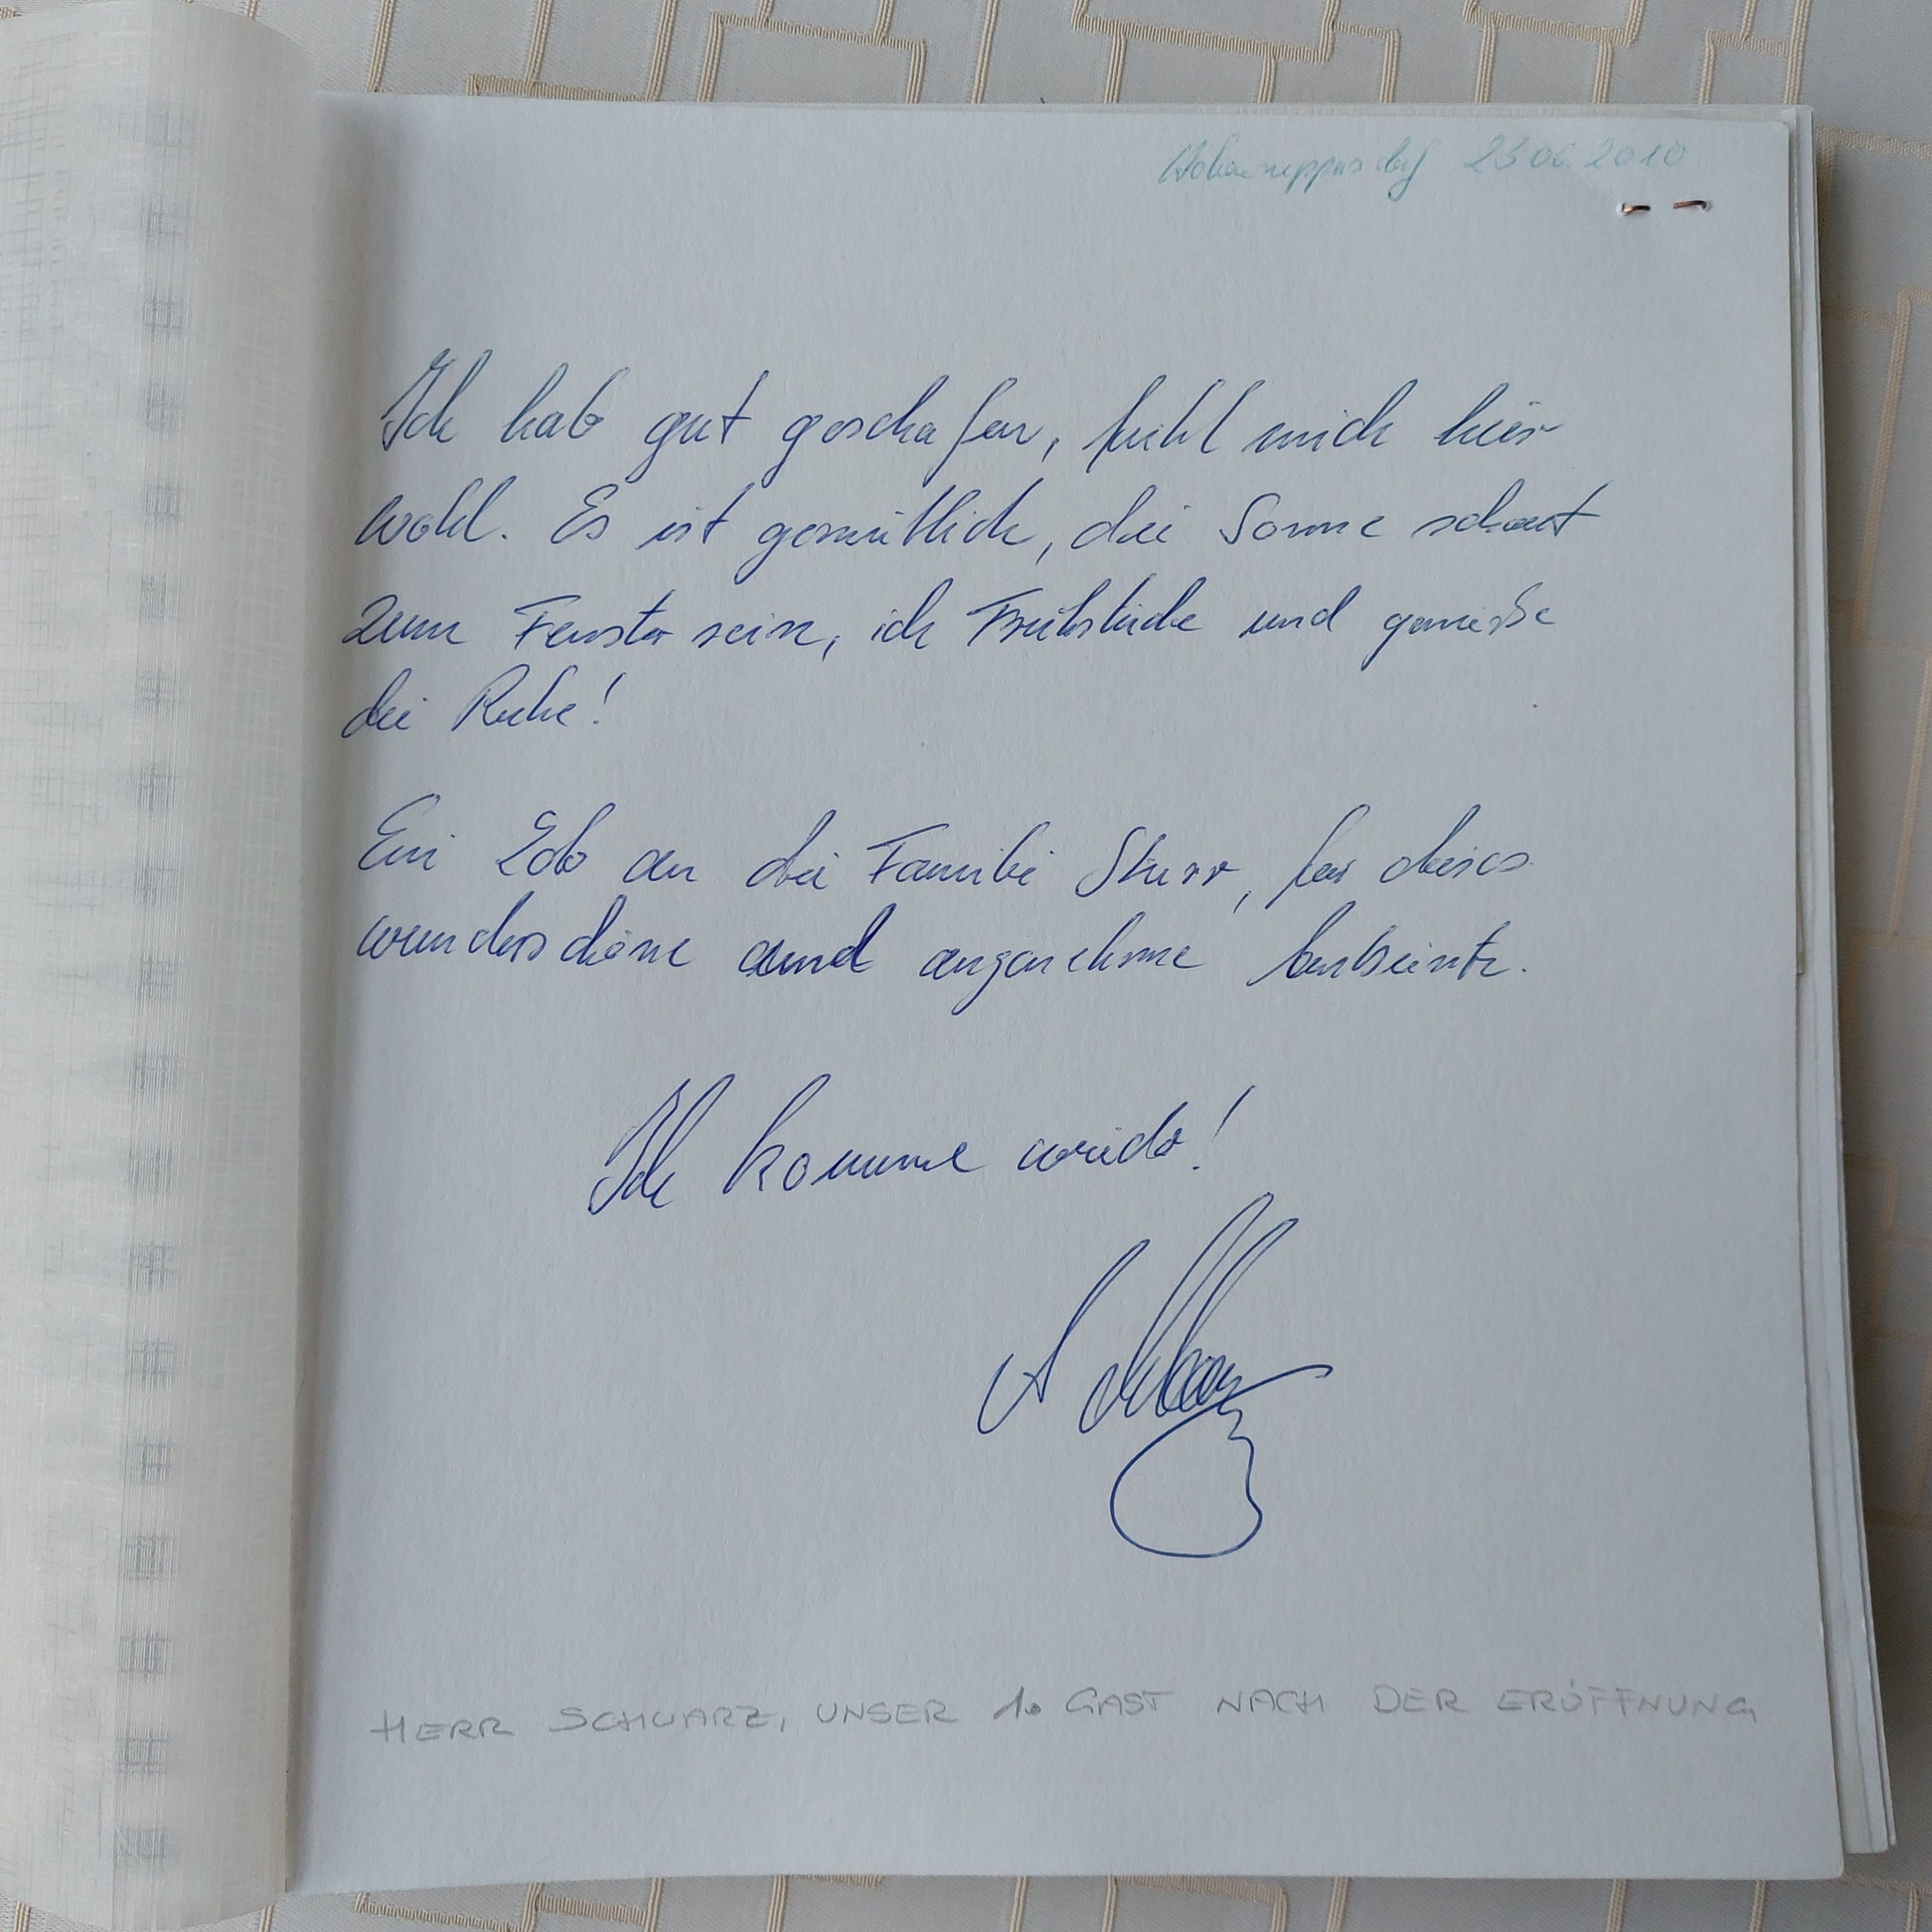 Hohenruppersdorf 25.06.2010
Ich hab gut geschafen, fühl mich hier
wohl. Es ist gemütlich, die Sonne schaut
zum Fenster rein, ich Frühstücke und genieße
die Ruhe!
Ein Lob an die Familie Sturr, für dieses
wunderschöne und angenehme
Ich komme wieder!
HERR SCHWARZ, UNSER 1. GAST NACH DER ERÖFFNUNG